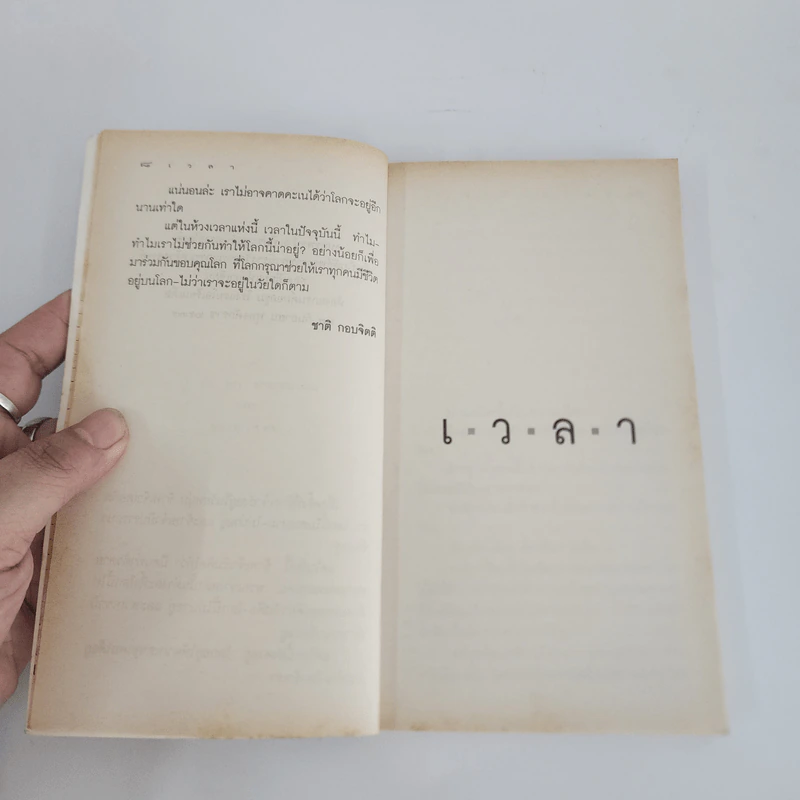 ๘ เ ว ล า
แน่นอนล่ะ เราไม่อาจคาดคะเนได้ว่าโลกจะอยู่อีก
นานเท่าใด
แต่ในห้วงเวลาแห่งนี้ เวลาในปัจจุบันนี้ ทำไม-
ทำไมเราไม่ช่วยกันทำให้โลกนี้น่าอยู่? อย่างน้อยก็เพื่อ
มาร่วมกันขอบคุณโลก ที่โลกกรุณาช่วยให้เราทุกคนมีชีวิต
อยู่บนโลก-ไม่ว่าเราจะอยู่ในวัยใดก็ตาม
ชาติ กอบจิตติ
เ·ว·ล·า